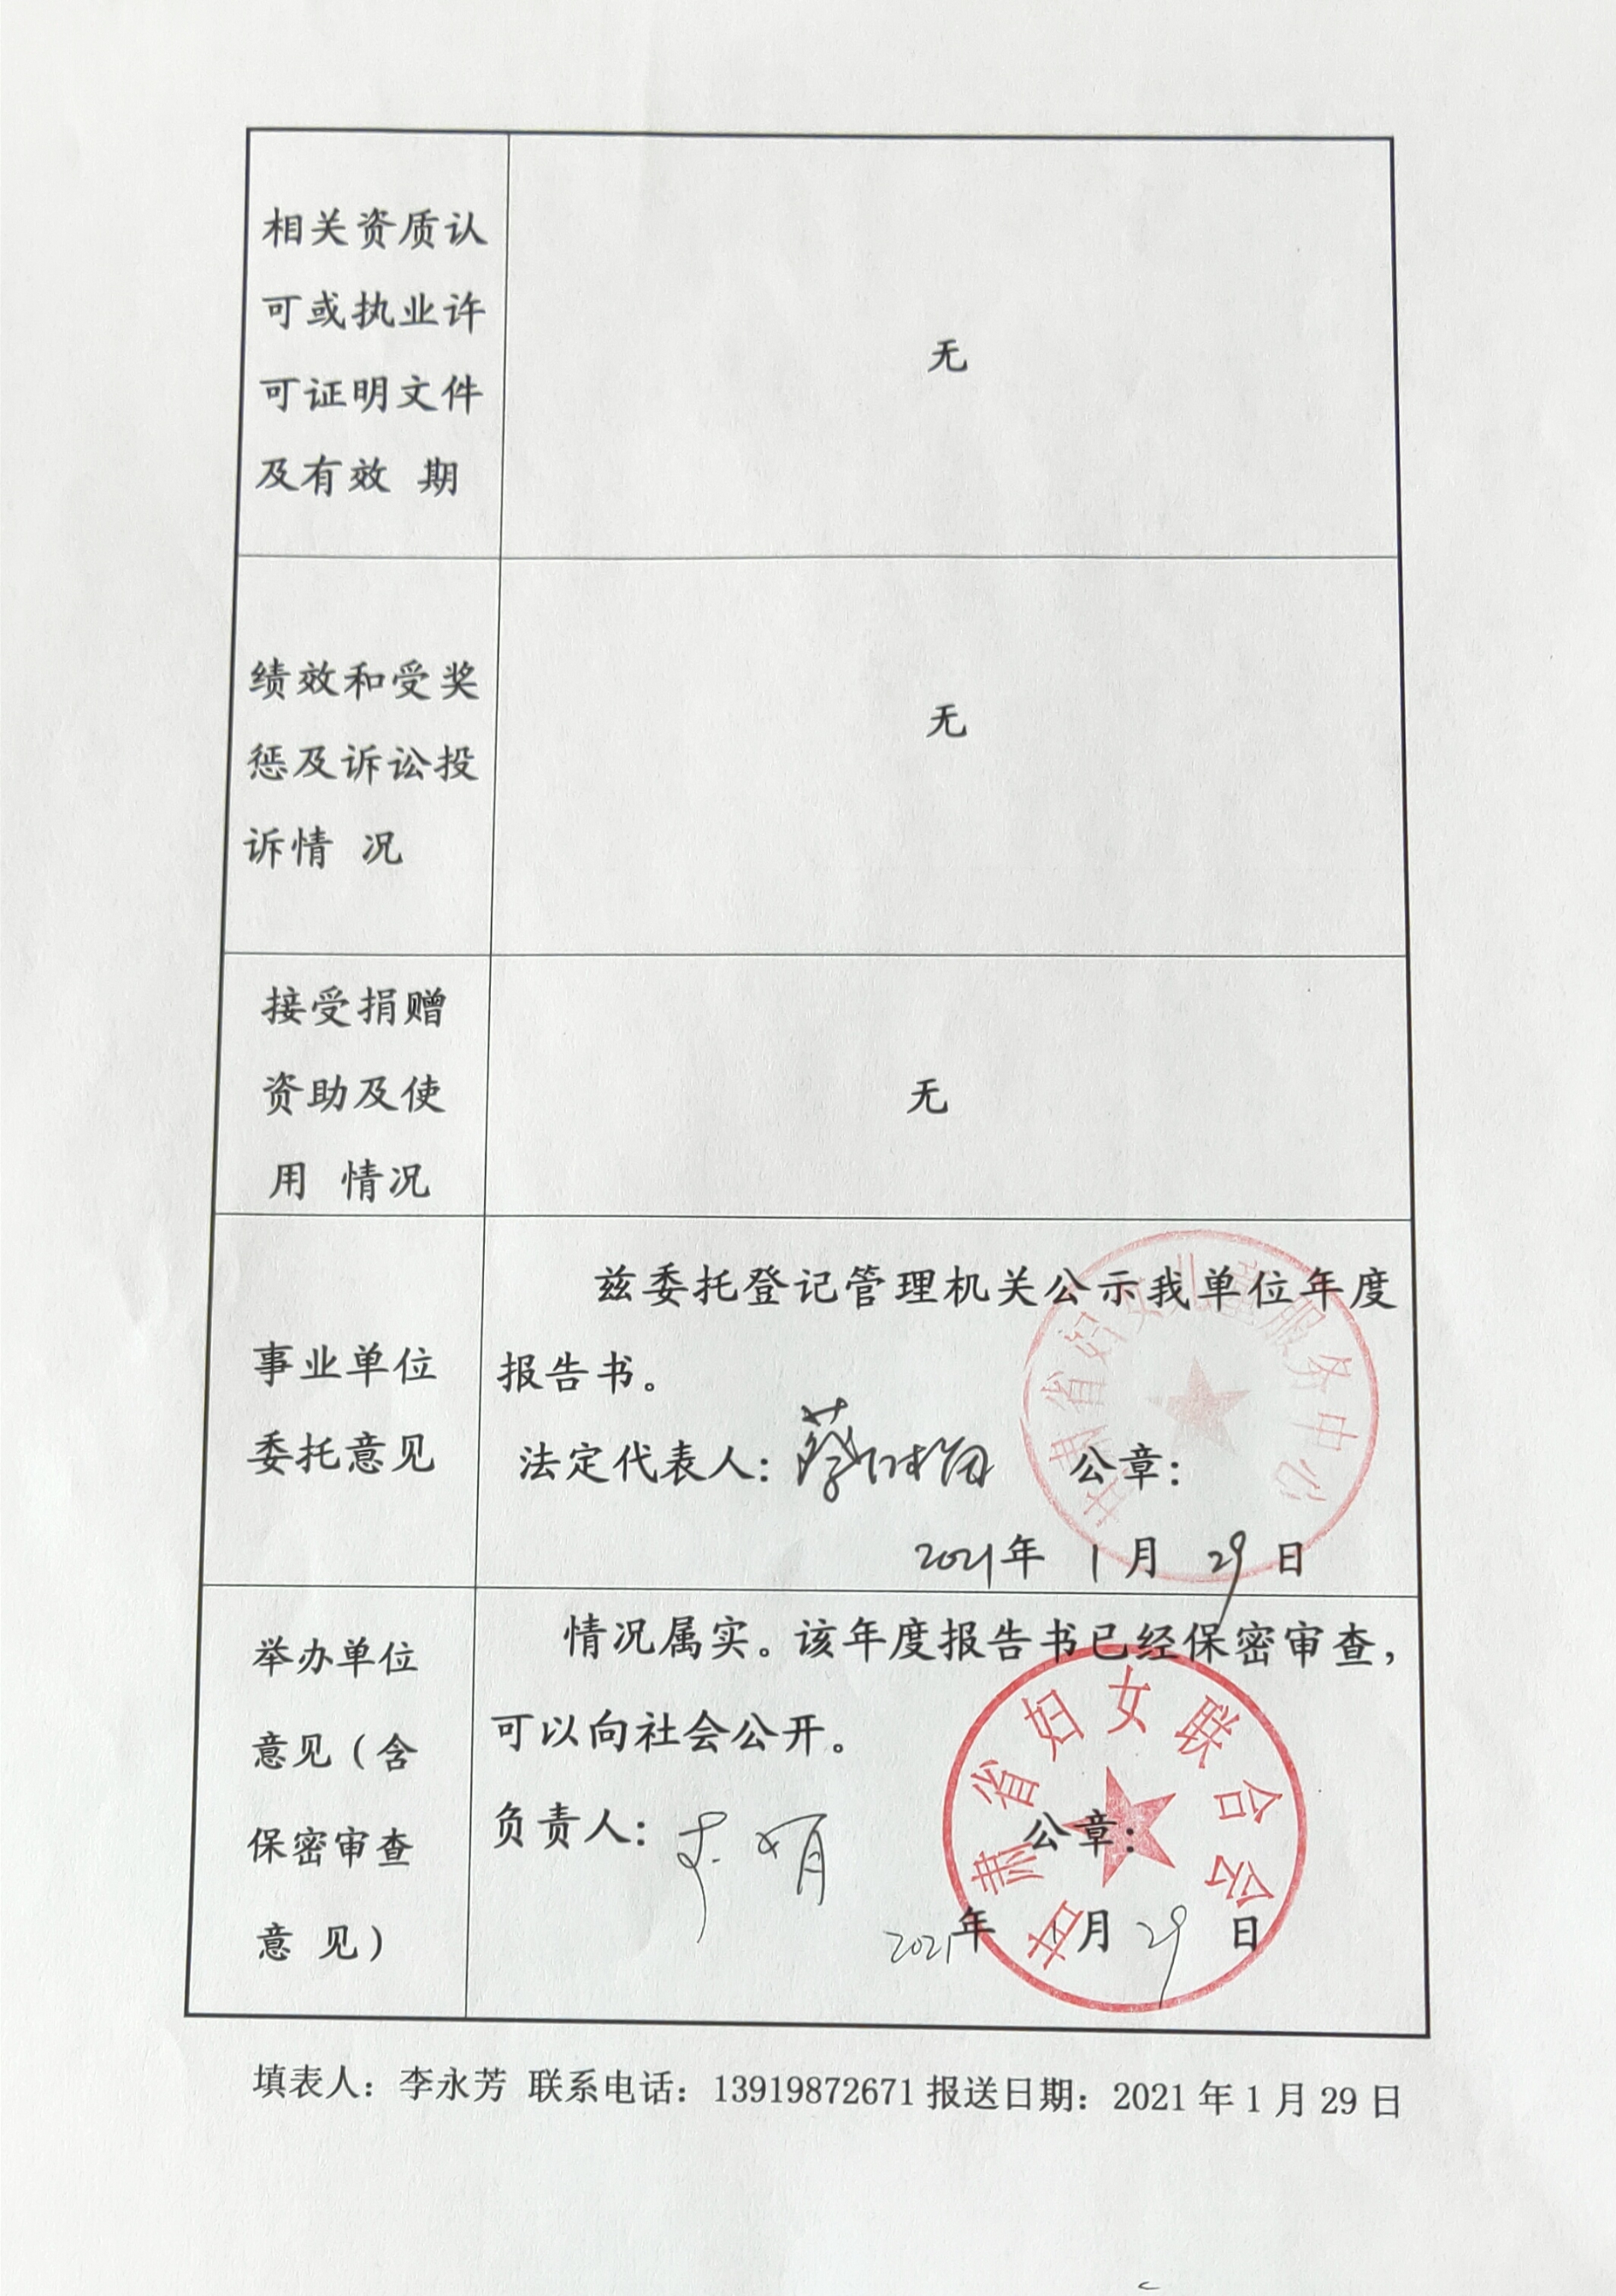 相关资质认
可或执业许
可证明文件
及有效 期
无
绩效和受奖
惩及诉讼投
诉情 况
无
接受捐赠
资助及使
用 情况
无
事业单位
委托意见
兹委托登记管理机关公示我单位年度
报告书。
法定代表人: 公章:
2021年 1月 29日
甘肃省妇女儿童服务中心
举办单位
意见(含
保密审查
意 见)
情况属实。该年度报告书已经保密审查,
可以向社会公开。
负责人: 公章:
2021年 1月 29 日
甘肃省妇女联合会
填表人: 李永芳 联系电话: 13919872671 报送日期: 2021年1月29日